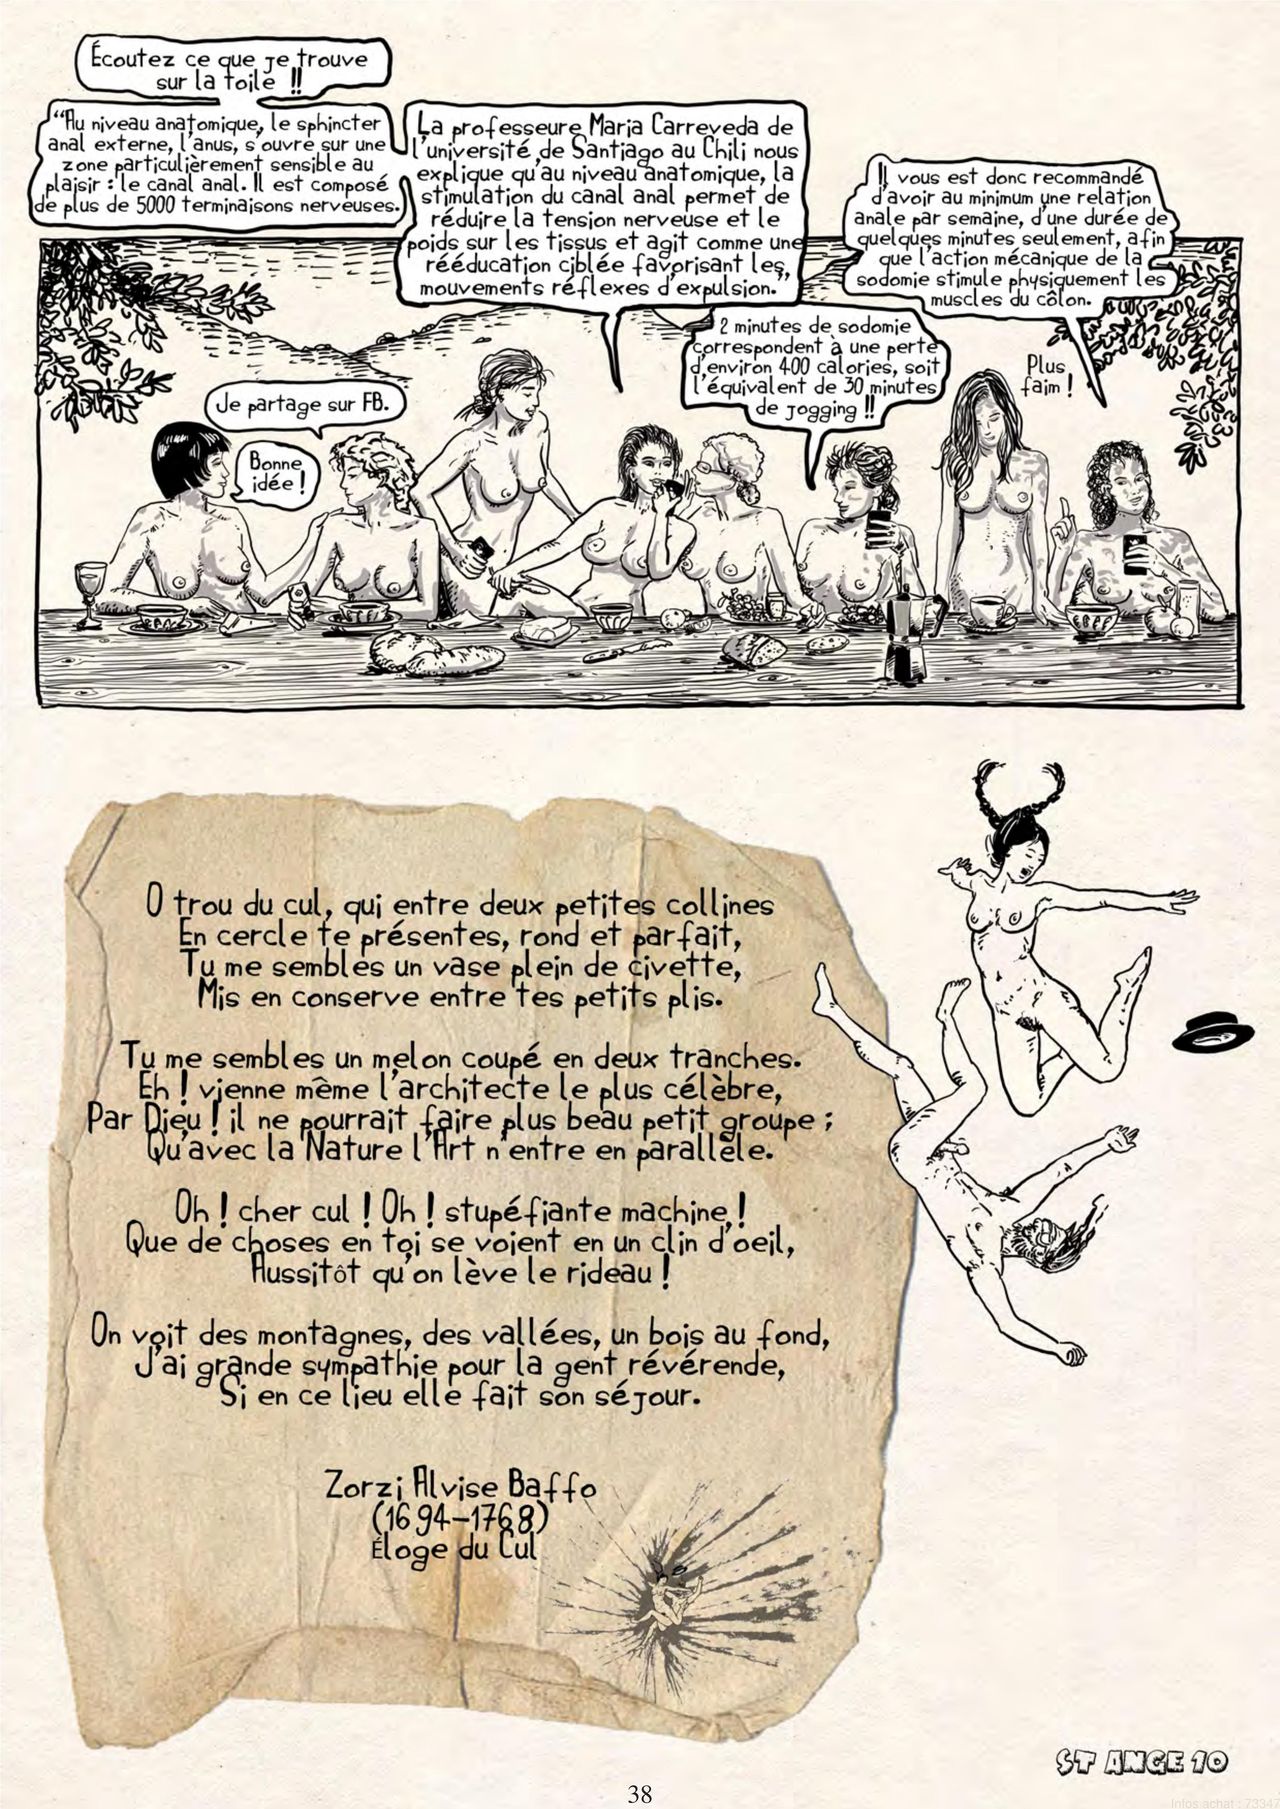 Écoutez ce que je trouve
sur la toile !!
“Au niveau anatomique, le sphincter
anal externe, l'anus, s'ouvre sur une
zone particulièrement sensible au
plaisir : le canal anal. Il est composé
de plus de 5000 terminaisons nerveuses.
La professeure Maria Carreveda de
l'université de Santiago au Chili nous
explique qu'au niveau anatomique, la
stimulation du canal anal permet de
réduire la tension nerveuse et le
poids sur les tissus et agit comme une
rééducation ciblée favorisant les
mouvements réflexes d'expulsion.
Il vous est donc recommandé
d'avoir au minimum une relation
anale par semaine, d'une durée de
quelques minutes seulement, afin
que l'action mécanique de la
sodomie stimule physiquement les
muscles du côlon.
2 minutes de sodomie
correspondent à une perte
d'environ 400 calories, soit
l'équivalent de 30 minutes
de jogging !!
Plus
faim !
Je partage sur FB.
Bonne
idée !
O trou du cul, qui entre deux petites collines
En cercle te présentes, rond et parfait,
Tu me sembles un vase plein de civette,
Mis en conserve entre tes petits plis.
Tu me sembles un melon coupé en deux tranches.
Eh ! vienne même l'architecte le plus célèbre,
Par Dieu ! il ne pourrait faire plus beau petit groupe ;
Qu'avec la Nature l'Art n'entre en parallèle.
Oh ! cher cul ! Oh ! stupéfiante machine !
Que de choses en toi se voient en un clin d'oeil,
Aussitôt qu'on lève le rideau !
On voit des montagnes, des vallées, un bois au fond,
J'ai grande sympathie pour la gent révérende,
Si en ce lieu elle fait son séjour.
Zorzi Alvise Baffo
(1694-1768)
Éloge du Cul
ST ANGE 10
38
Infos achat : 73347